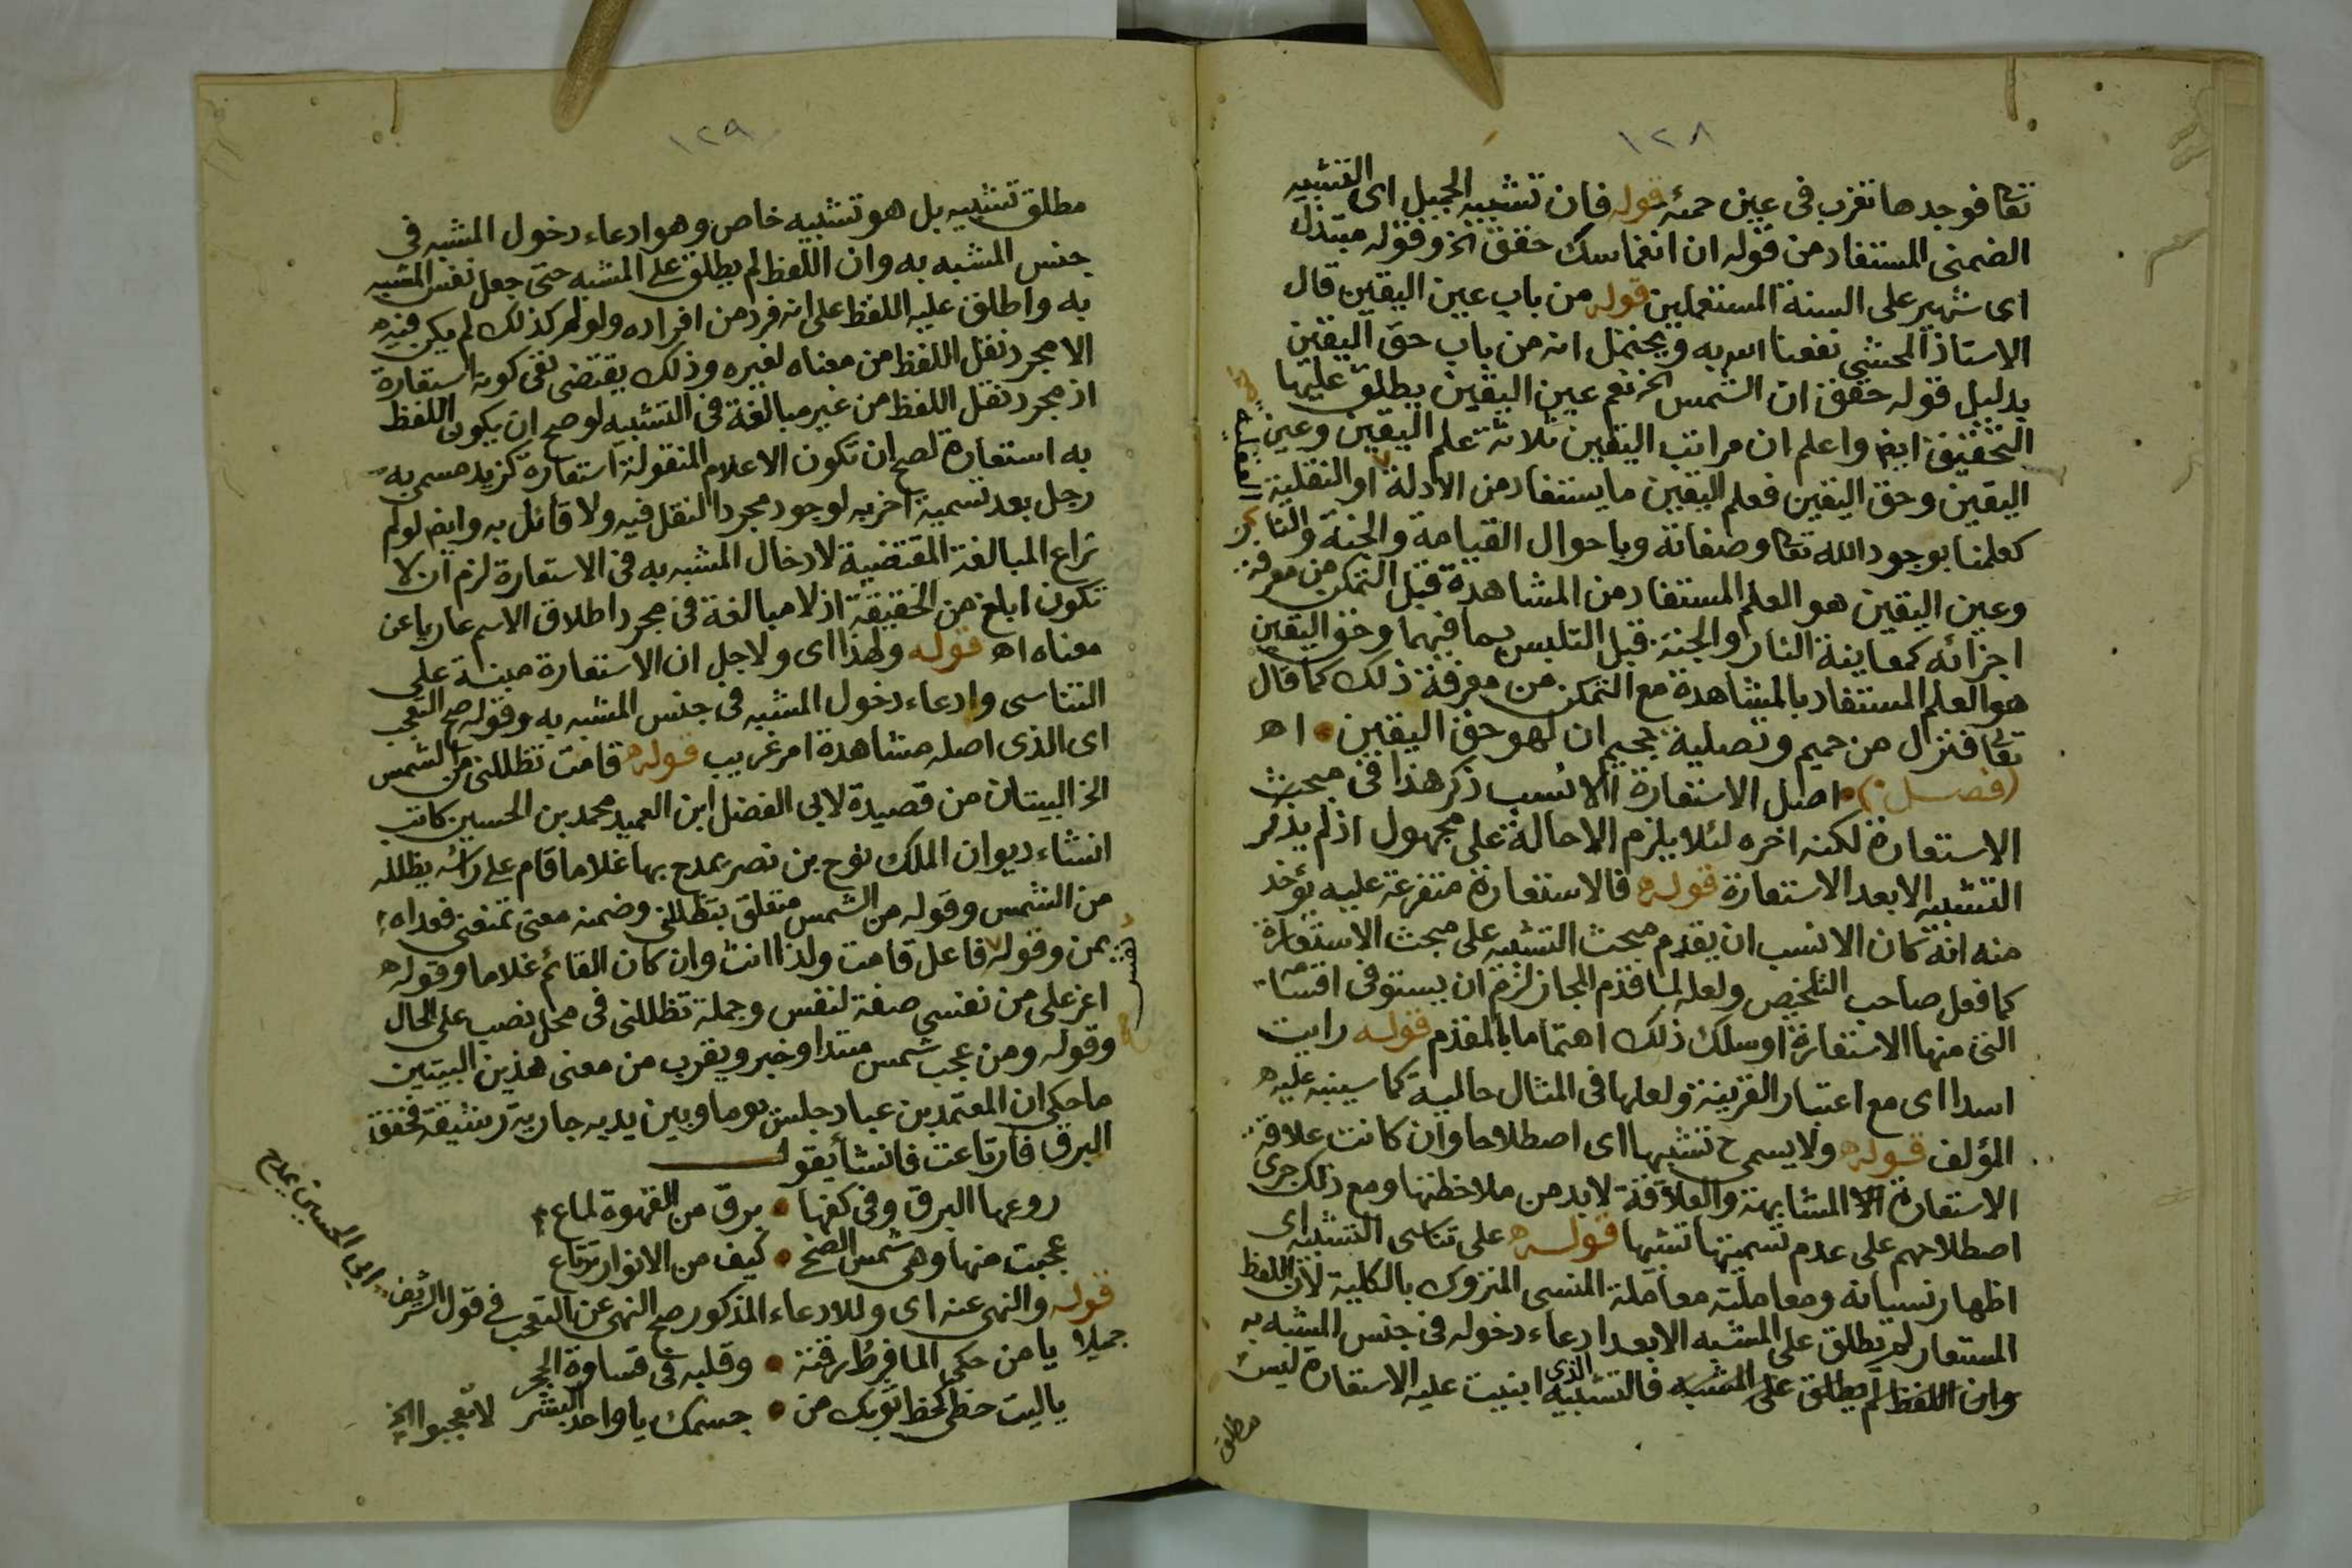 ١٢٨
تعالى فوجدها تغرب في عين حمئة قوله فان تشبيه الجميل اى التشبيه
الضمنى المستفاد من قوله ان انغماسك حقق الخ وقوله مبتذل
اى شهير على السنة المستعملين قوله من باب عين اليقين قال
الاستاذ المحشى نفعنا الله به ويحتمل انه من باب حق اليقين
بدليل قوله حقق ان الشمس الخ نعم عين اليقين يطلق عليها
التحقيق ايضا واعلم ان مراتب اليقين ثلاثة علم اليقين وعين
اليقين وحق اليقين فعلم اليقين ما يستفاد من الادلة او النقلية
العقلية
كعلمنا بوجود الله تعالى وصفاته وباحوال القيامة والجنة والنار
وعين اليقين هو العلم المستفاد من المشاهدة قبل التمكن من معرفة
اجزائه كمعاينة النار والجنة قبل التلبس بما فيهما وحق اليقين
هو العلم المستفاد بالمشاهدة مع التمكن من معرفة ذلك كما قال
تعالى فنزل من حميم وتصلية جحيم ان لهو حق اليقين اه
(فصل) اصل الاستعارة الانسب ذكر هذا في مبحث
الاستعارة لكنه اخره لئلا يلزم الاحالة على مجهول اذ لم يذكر
التشبيه الا بعد الاستعارة قوله فالاستعارة متفرعة عليه يؤخذ
منه انه كان الانسب ان يقدم مبحث التشبيه على مبحث الاستعارة
كما فعل صاحب التلخيص ولعله لما قدم المجاز لزم ان يستوفى اقسامه
التى منها الاستعارة او سلك ذلك اهتماما بالمقدم قوله رايت
اسدا اى مع اعتبار القرينة ولعلها في المثال حالية كما سينبه عليه
المؤلف قوله ولا يسمى ح تشبيها اى اصطلاحا وان كانت علاقة
الاستعارة الا المشابهة والعلاقة لابد من ملاحظتها ومع ذلك جرى
اصطلاحهم على عدم تسميتها تشبيها قوله على تناسى التشبيه اى
اظهار نسيانه ومعاملته معاملة المنسى المتروك بالكلية لان اللفظ
المستعار لم يطلق على المشبه الا بعد ادعاء دخوله في جنس المشبه به
وان اللفظ لم يطلق على المشبه فالتشبيه الذى ابنيت عليه الاستعارة ليس
مطلق
١٢٩
مطلق تشبيه بل هو تشبيه خاص وهو ادعاء دخول المشبه في
جنس المشبه به وان اللفظ لم يطلق على المشبه حتى جعل نفس المشبه
به واطلق عليه اللفظ على انه فرد من افراده ولو لم كذلك لم يكن فيه
الا مجرد نقل اللفظ من معناه لغيره وذلك يقتضى نفى كونه استعارة
اذ مجرد نقل اللفظ من غير مبالغة في التشبيه لو صح ان يكون اللفظ
به استعارة لصح ان تكون الاعلام المنقولة استعارة كزيد مسمى به
رجل بعد تسمية اخر به لوجود مجرد النقل فيه ولا قائل به وايضا لو لم
تراع المبالغة المقتضية لادخال المشبه به في الاستعارة لزم ان لا
تكون ابلغ من الحقيقة اذ لا مبالغة في مجرد اطلاق الاسم عاريا عن
معناه اه قوله ولهذا اى ولاجل ان الاستعارة مبنية على
التناسى وادعاء دخول المشبه في جنس المشبه به وقوله صح التعجب
اى الذى اصله مشاهدة امر غريب قوله قامت تظللنى من الشمس
الخ البيتان من قصيدة لابى الفضل ابن العميد محمد بن الحسين كاتب
انشاء ديوان الملك نوح بن نصر يمدح بها غلاما قام على راسه يظلله
من الشمس وقوله من الشمس متعلق بتظللنى وضمنه معنى تمنعنى فعداه
بمن وقوله فاعل قامت ولذا انث وان كان القائم غلاما وقوله
نفس
اعز على من نفسى صفة لنفس وجملة تظللنى في محل نصب على الحال
وقوله ومن عجب شمس مبتدا وخبر ويقرب من معنى هذين البيتين
ما حكى ان المعتمد بن عباد جلس يوما وبين يديه جارية رشيقة فخفق
البرق فارتاعت فانشأ يقول
روعها البرق وفي كفها • برق من القهوة لماع
عجبت منها وهى شمس الضحى • كيف من الانوار ترتاع
قوله والنهى عنه اى وللادعاء المذكور صح النهى عن التعجب في قول الشريف
ابى الحسين يمدح
جميلا يا من حكى الما فرط رقته • وقلبه في قساوة الحجر
ياليت حظى كحظ ثوبك من • جسمك يا واحد البشر لا تعجبوا الخ